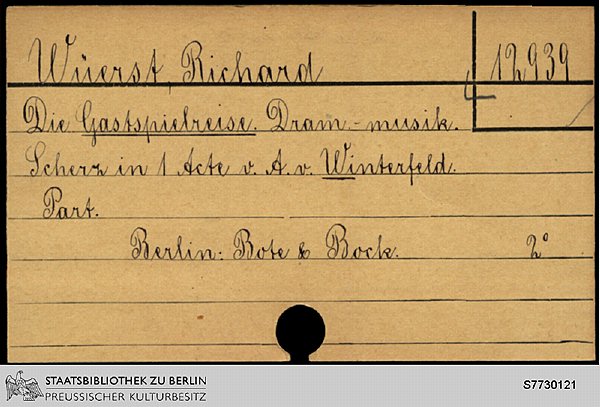 Wüerst, Richard
12939
Die Gastspielreise. Dram.-musik.
Scherz in 1 Acte v. A. v. Winterfeld.
Part.
Berlin: Bote & Bock. 2°
STAATSBIBLIOTHEK ZU BERLIN
PREUSSISCHER KULTURBESITZ
S7730121